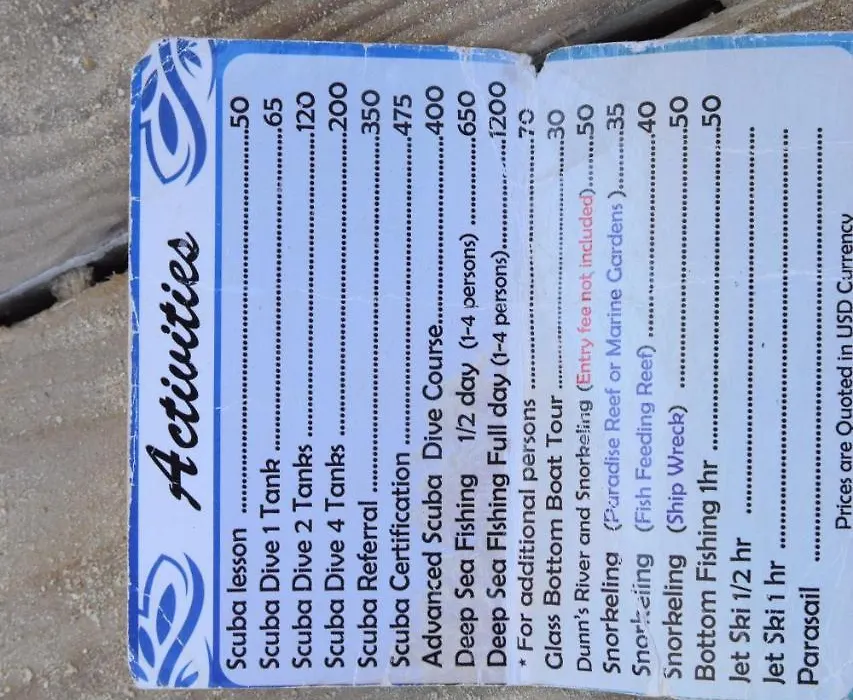 Activities
Scuba lesson ........................................50
Scuba Dive 1 Tank ........................................65
Scuba Dive 2 Tanks........................................120
Scuba Dive 4 Tanks ........................................200
Scuba Referral ........................................350
Scuba Certification........................................475
Advanced Scuba Dive Course........................400
Deep Sea Fishing 1/2 day (1-4 persons) ..........650
Deep Sea Fishing Full day (1-4 persons)............1200
* For additional persons ........................................70
Glass Bottom Boat Tour........................................30
Dunn's River and Snorkeling (Entry fee not included)......50
Snorkeling (Paradise Reef or Marine Gardens )........35
Snorkeling (Fish Feeding Reef) ..............................40
Snorkeling (Ship Wreck) ........................................50
Bottom Fishing 1hr ........................................50
Jet Ski 1/2 hr ........................................
Jet Ski 1 hr ........................................
Parasail ........................................
Prices are Quoted in USD Currency